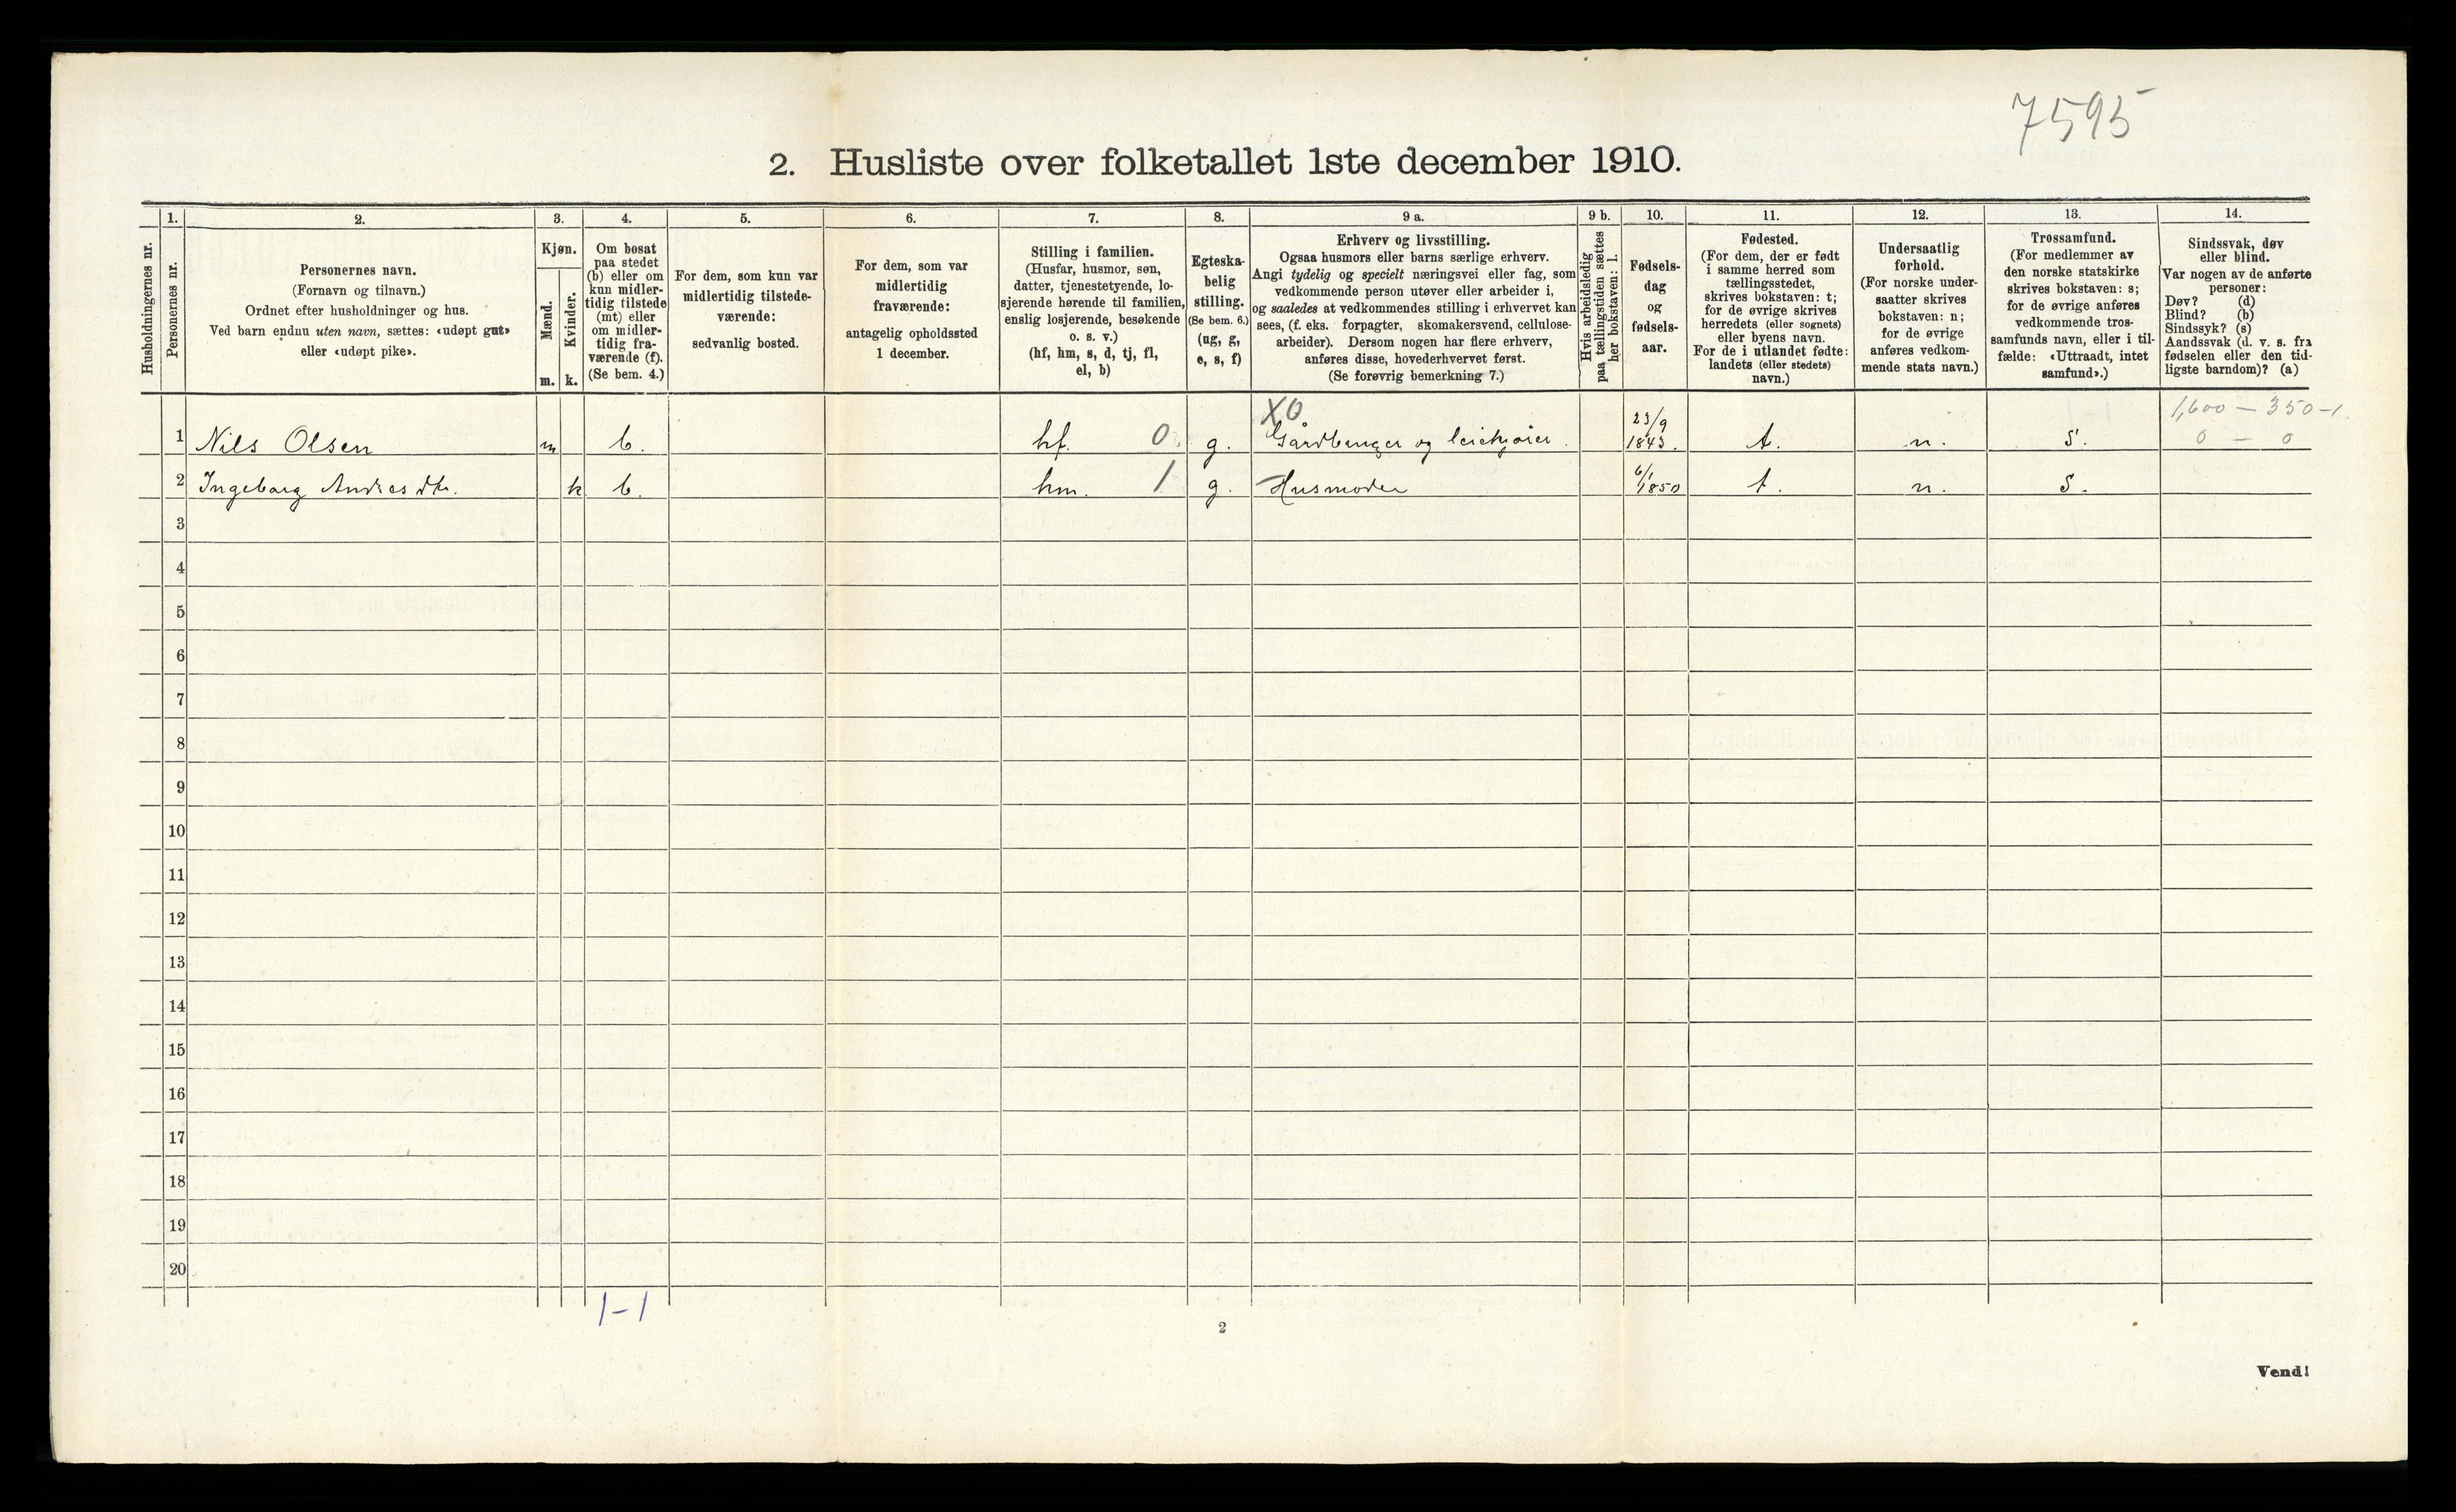 7595
2. Husliste over folketallet 1ste december 1910.
Husholdningernes nr.
1.
Personernes nr.
2.
Personernes navn.
(Fornavn og tilnavn.)
Ordnet efter husholdninger og hus.
Ved barn endnu uten navn, sættes: «udøpt gut»
eller «udøpt pike».
3.
Kjøn.
Mænd.
m.
Kvinder.
k.
4.
Om bosat
paa stedet
(b) eller om
kun midler-
tidig tilstede
(mt) eller
om midler-
tidig fra-
værende (f).
(Se bem. 4.)
5.
For dem, som kun var
midlertidig tilstede-
værende:
sedvanlig bosted.
6.
For dem, som var
midlertidig
fraværende:
antagelig opholdssted
1 december.
7.
Stilling i familien.
(Husfar, husmor, søn,
datter, tjenestetyende, lo-
sjerende hørende til familien,
enslig losjerende, besøkende
o. s. v.)
(hf, hm, s, d, tj, fl,
el, b)
8.
Egteska-
belig
stilling.
(Se bem. 6.)
(ug, g,
e, s, f)
9 a.
Erhverv og livsstilling.
Ogsaa husmors eller barns særlige erhverv.
Angi tydelig og specielt næringsvei eller fag, som
vedkommende person utøver eller arbeider i,
og saaledes at vedkommendes stilling i erhvervet kan
sees, (f. eks. forpagter, skomakersvend, cellulose-
arbeider). Dersom nogen har flere erhverv,
anføres disse, hovederhvervet først.
(Se forøvrig bemerkning 7.)
9 b.
Hvis arbeidsledig
paa tællingstiden sættes
her bokstaven: l.
10.
Fødsels-
dag
og
fødsels-
aar.
11.
Fødested.
(For dem, der er født
i samme herred som
tællingsstedet,
skrives bokstaven: t;
for de øvrige skrives
herredets (eller sognets)
eller byens navn.
For de i utlandet fødte:
landets (eller stedets)
navn.)
12.
Undersaatlig
forhold.
(For norske under-
saatter skrives
bokstaven: n;
for de øvrige
anføres vedkom-
mende stats navn.)
13.
Trossamfund.
(For medlemmer av
den norske statskirke
skrives bokstaven: s;
for de øvrige anføres
vedkommende tros-
samfunds navn, eller i til-
fælde: «Uttraadt, intet
samfund».)
14.
Sindssvak, døv
eller blind.
Var nogen av de anførte
personer:
Døv? (d)
Blind? (b)
Sindssyk? (s)
Aandssvak (d. v. s. fra
fødselen eller den tid-
ligste barndom)? (a)
X0 1,600 — 350-1.
1 Nils Olsen m b. hf. 0 g. Gårdbruger og 23/9 1843. t. n. S. 0 — 0
2 Ingeborg Andresdtr. k b. hm. 1 g. Husmoder 6/1 1850 t. n. S.
3
4
5
6
7
8
9
10
11
12
13
14
15
16
17
18
19
20
1-1
2
Vend!